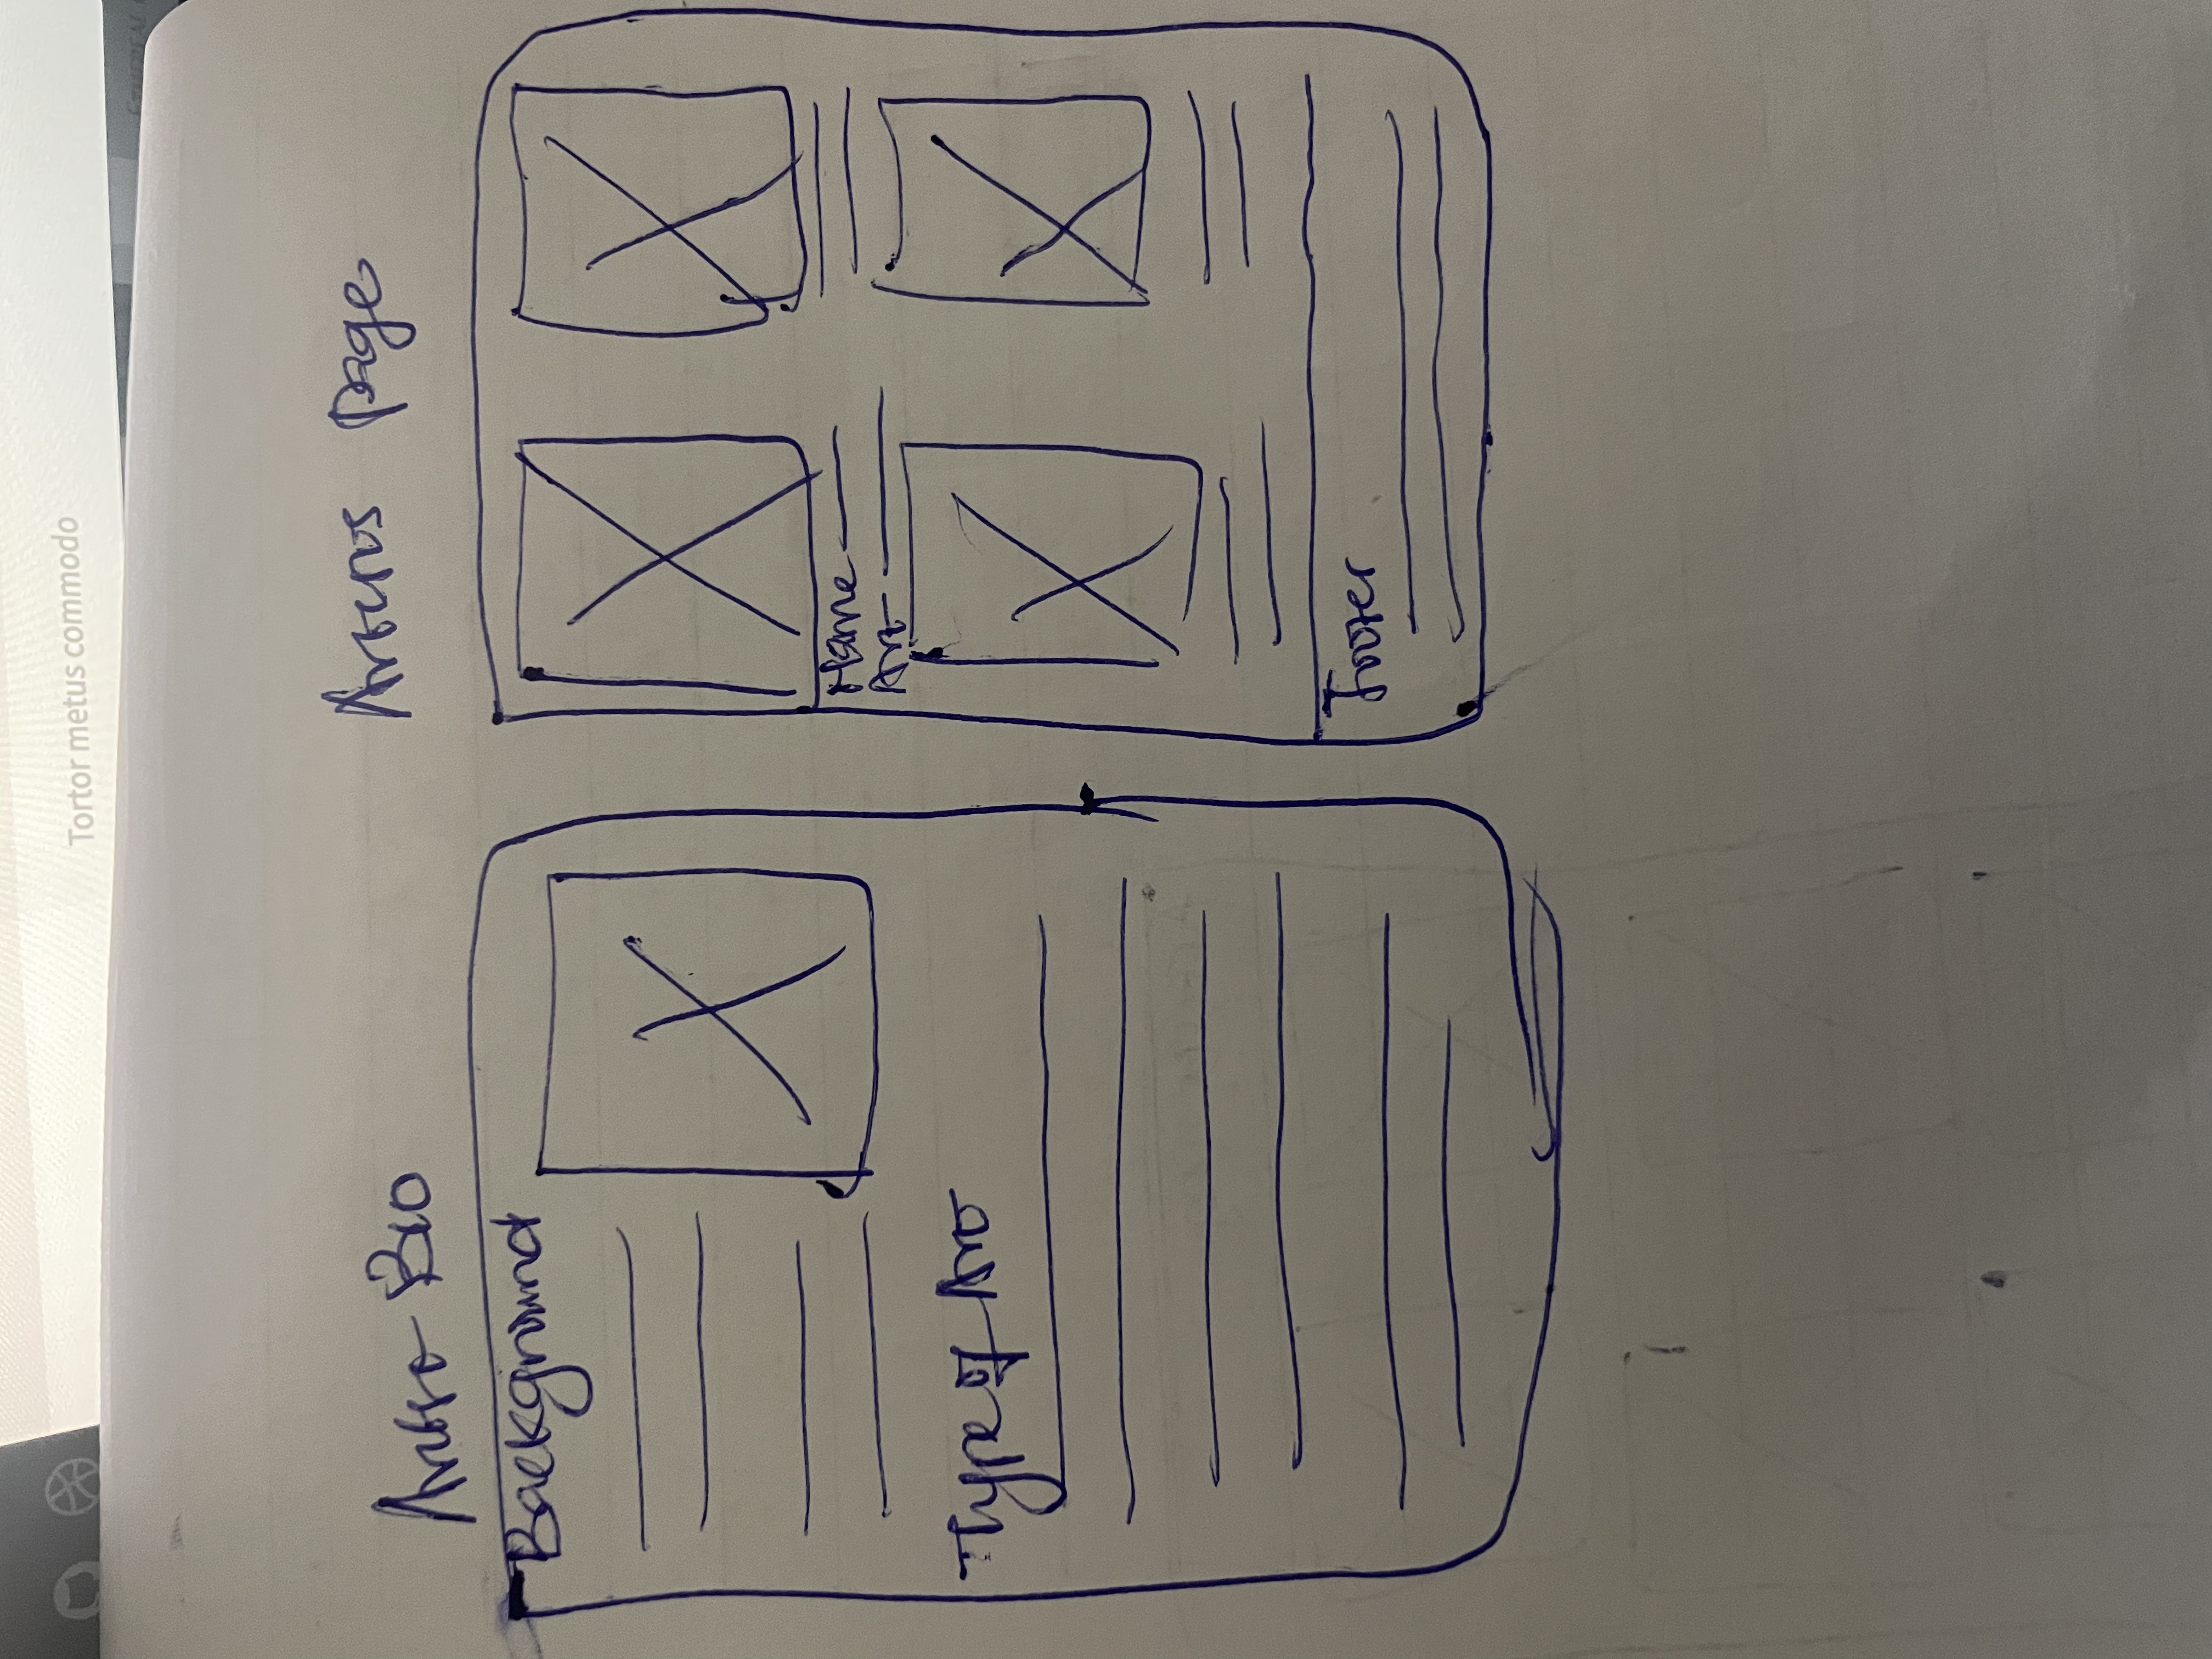 Tortor metus commodo
ETHEREAL
Artist Bio
Background
Type of Art
Artists page
Name
Art
Footer